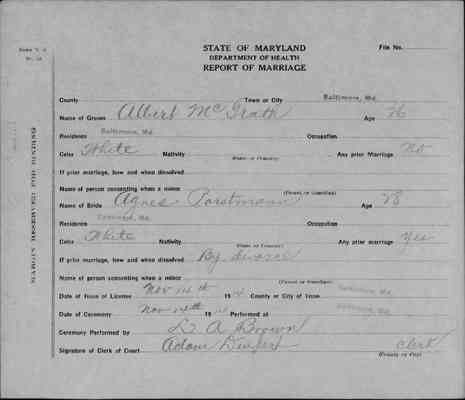 STATE OF MARYLAND
DEPARTMENT OF HEALTH
REPORT OF MARRIAGE
File No.
County Town or City Baltimore, Md.
Name of Groom Albert McGrath Age 26
Residence Baltimore, Md. Occupation
Color White Nativity Any prior Marriage No
(State or Country)
If prior marriage, how and when dissolved
Name of person consenting when a minor
(Parent or Guardian)
Name of Bride Agnes Porstmann Age 28
Residence Baltimore, Md. Occupation
Color White Nativity Any prior Marriage Yes
(State or Country)
If prior marriage, how and when dissolved By divorce
Name of person consenting when a minor
(Parent or Guardian)
Date of Issue of License Nov 14th 19 County or City of Issue Baltimore, Md.
Date of Ceremony Nov 14th 19 Performed at Baltimore, Md.
Ceremony Performed by A Brown
Signature of Clerk of Court Adam Deupert Clerk
(County or City)